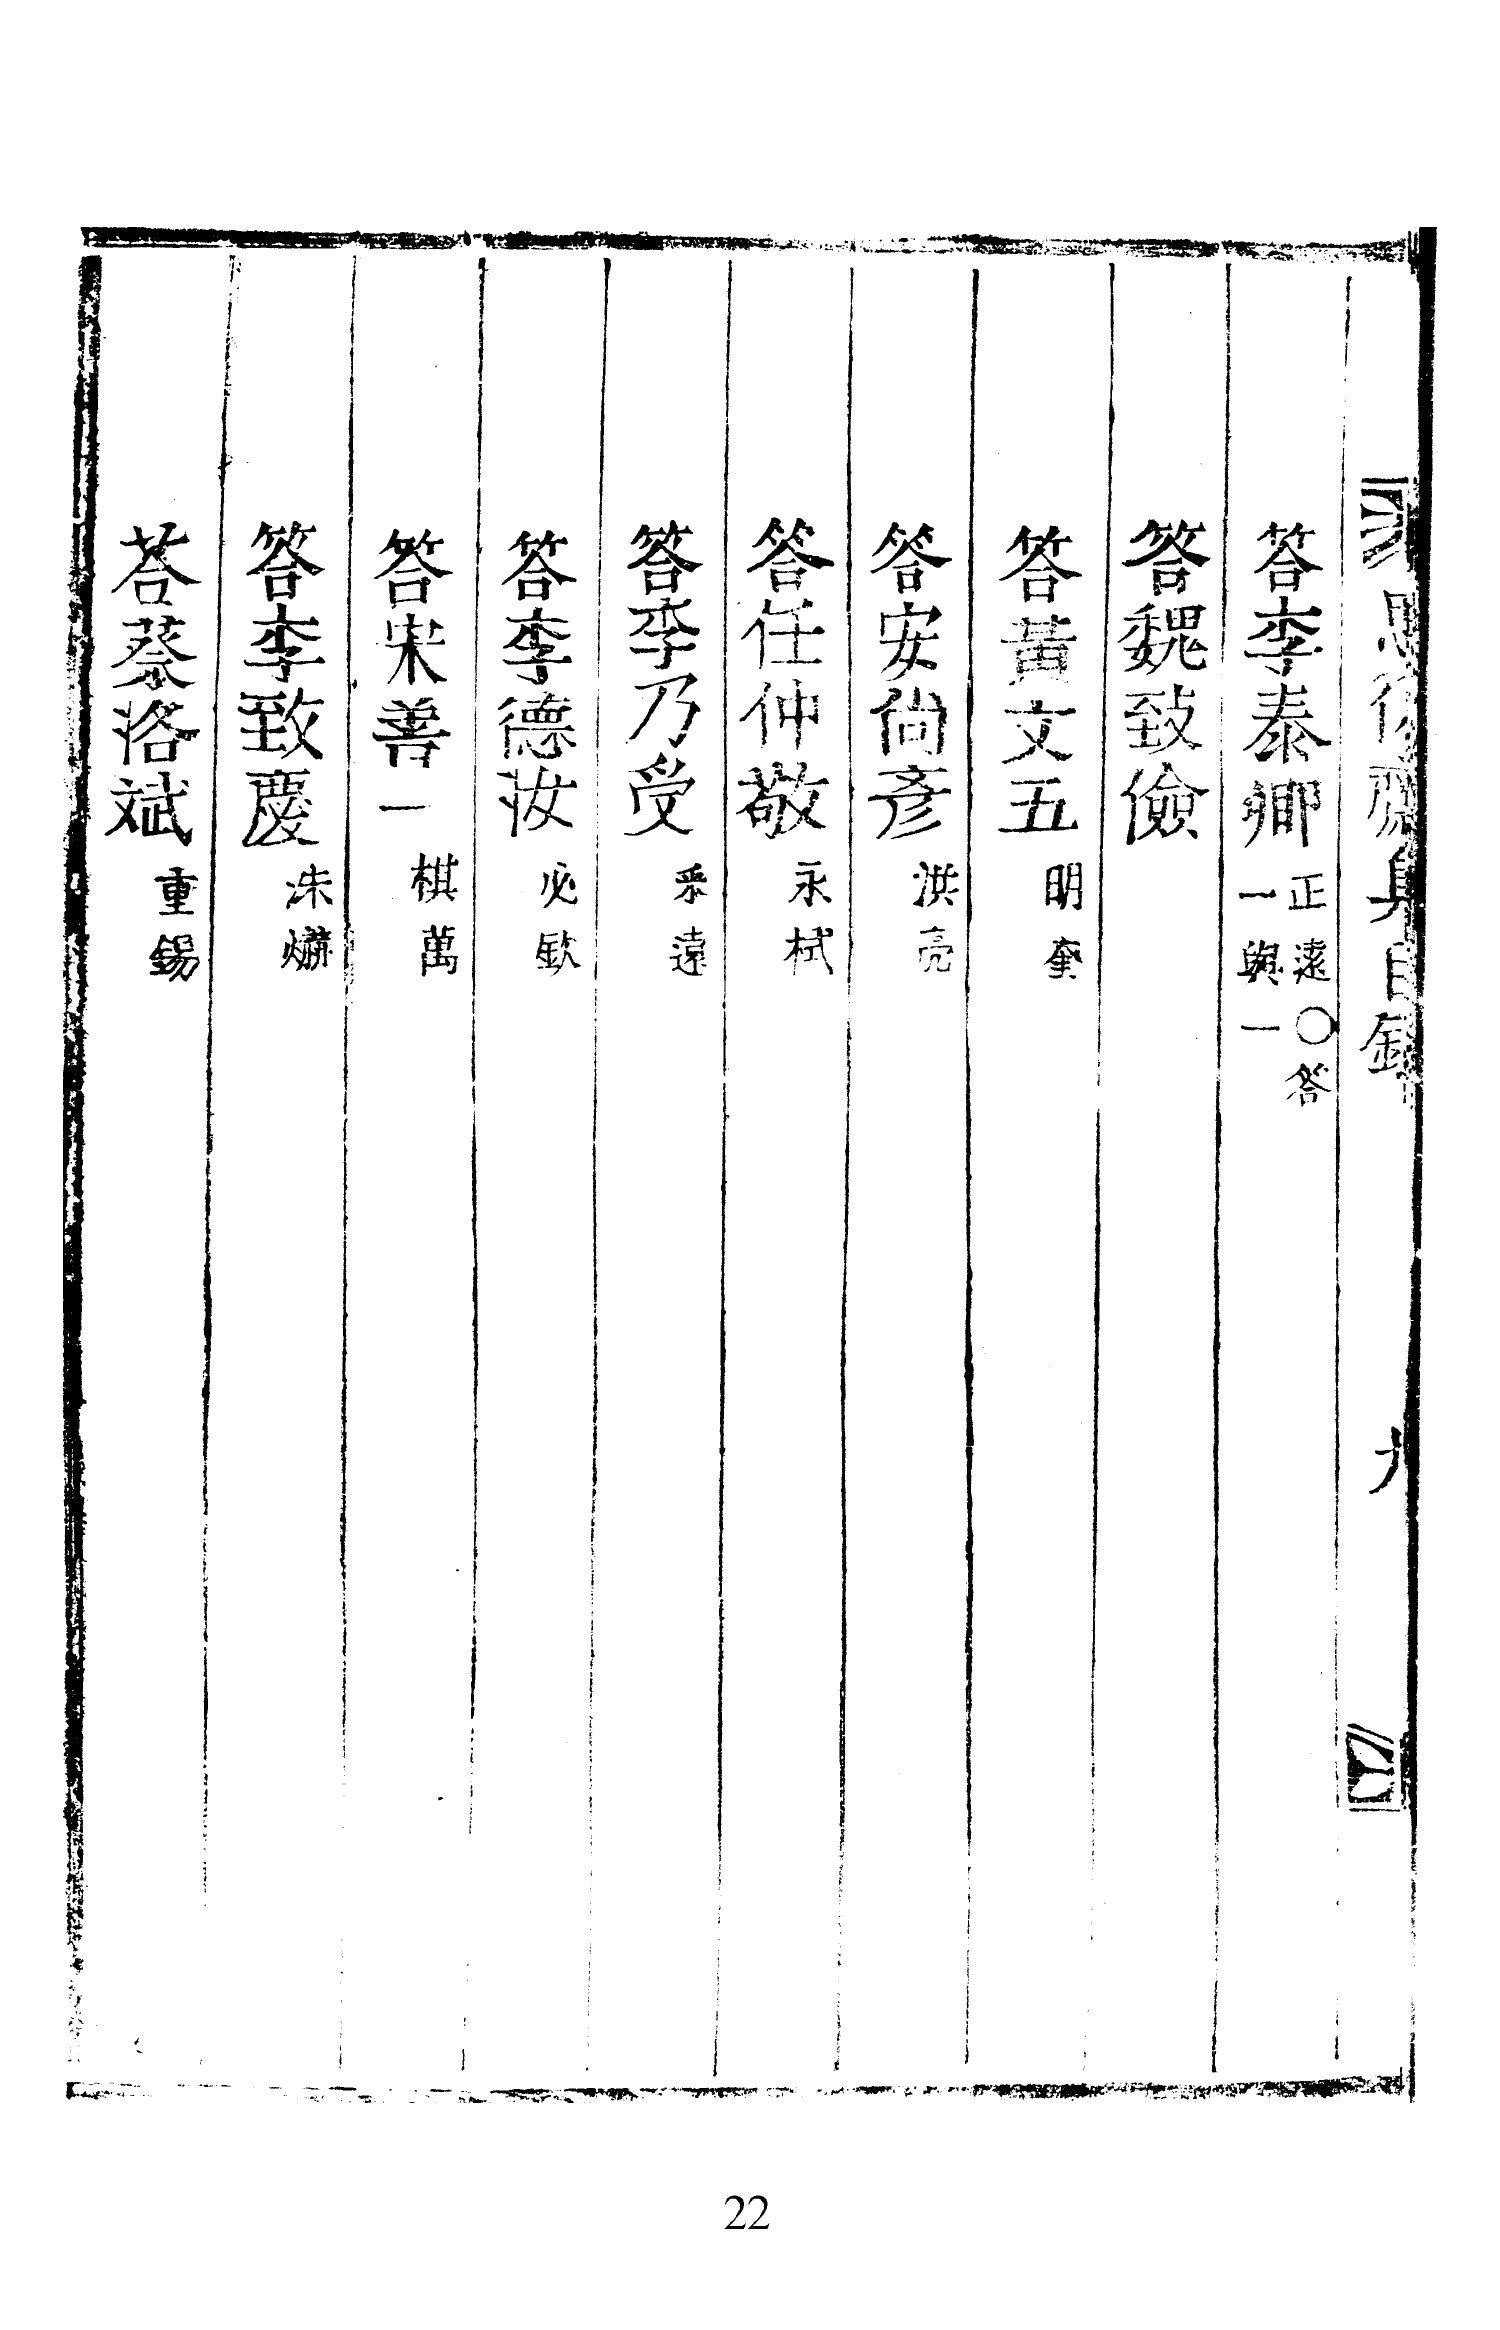 齋集目錄 九
答李泰卿 正遠○答一與一
答魏致儉
答黃文五 明奎
答安尙彥 洪亮
答任仲敬 永栻
答李乃受 采遠
答李德汝 必欽
答宋善一 棋萬
答李致慶 洙
答蔡洛斌 重錫
22